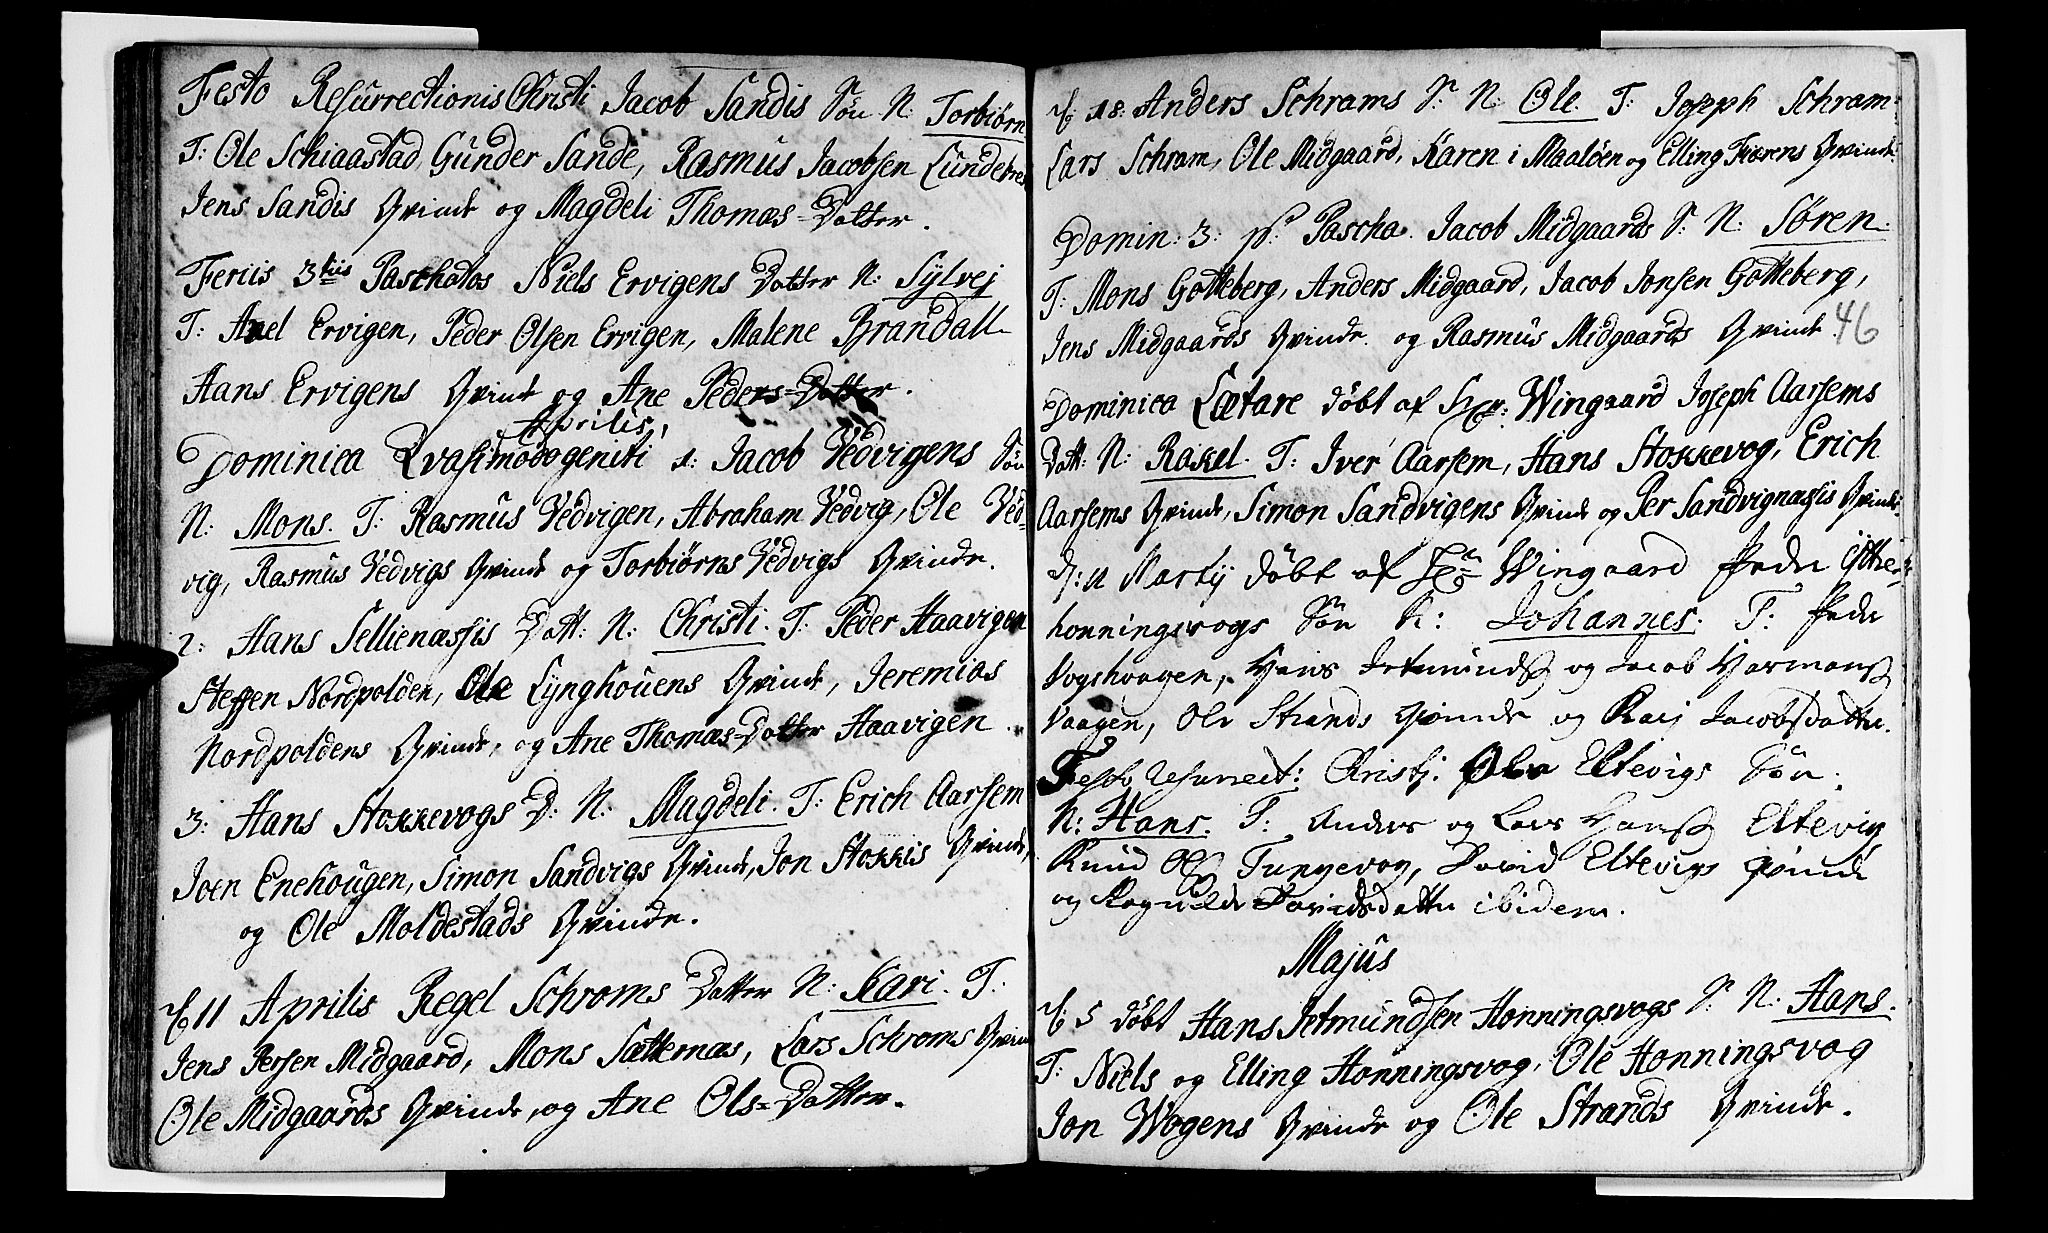 Festo Resurrectionis Christi Jacob Sandis Søn N: Torbiørn
T: Ole Schiaastad, Gunder Sande, Rasmus Jacobsen Lundetræ
Jens Sandis Qvinde og Magdeli Thomæs=Datter.
Feriis 3tiis Paschatos Niels Ervigens Datter N: Sylvej
T: Axel Ervigen, Peder Olsen Ervigen, Malene Brandall
Hans Ervigens Qvinde og Ane Peders=Datter.
Aprilis,
Dominica Qvasimodogeniti 1: Jacob Vedvigens Søn
N: Mons. T: Rasmus Vedvigen, Abraham Vedvig, Ole Ved=
vig, Rasmus Vedvigs Qvinde og Torbiørns Vedvigs Qvinde.
2: Hans Sellienæssis Datt: N: Christi. T: Peder Haavigen
Steffen Nordpolden, Ole Lynghouens Qvinde, Jeremias
Nordpoldens Qvinde, og Ane Thomæs=Datter Haavigen.
3: Hans Stokkevogs D: N: Magdeli. T: Erich Aarsem
Joen Enehougen, Simon Sandvigs Qvinde, Jon Stokkis Qvinde,
og Ole Moldestads Qvinde.
11 Aprilis Regel Schroms Datter N: Kari. T:
Jens Persen Midgaard, Mons Sætternæs, Lars Schroms Qvin
Ole Midgaards Qvinde, og Ane Ols=Datter.
18: Anders Schrams S: N: Ole. T: Joseph Schram
Lars Schram, Ole Midgaard, Karen i Maaløen og Elling Qvinde
Domin: 3: p: Pascha. Jacob Midgaards S: N: Søren.
T: Mons Gotteberg, Anders Midgaard, Jacob Jonsen Gotteberg,
Jens Midgaards Qvinde og Rasmus Midgaards Qvinde.
46
Dominica Lætare døbt af Hr: Wingaard Joseph Aarsems
Datt: N: Rakel. T: Iver Aarsem, Hans Stokkevog, Erich
Aarsems Qvinde, Simon Sandvigens Qvinde og Per Sandvignæssis Qvinde.
d: 11 Martij døbt af Hr Wingaard Peder
honningsvogs Søn N: Johannes. T: Peder
Vogshaagen, Hans Jetmunds og Jacob Hermans
Vaagen, Ole Strands Qvinde og Jacobsdatter.
Festo resurrect: Christj. Ole Eltevigs Søn
N: Hans. T: Anders og Lars Hans Eltevig
Knud Ols Tungevog, David Eltevigs Qvinde
og Ragnilde Davidsdatter ibidem.
Majus
5 døbt Hans Jetmundsen Honningsvogs S: N: Hans.
T: Niels og Elling Honningsvog, Ole Honningsvog
Jon Wogens Qvinde og Ole Strands Qvinde.